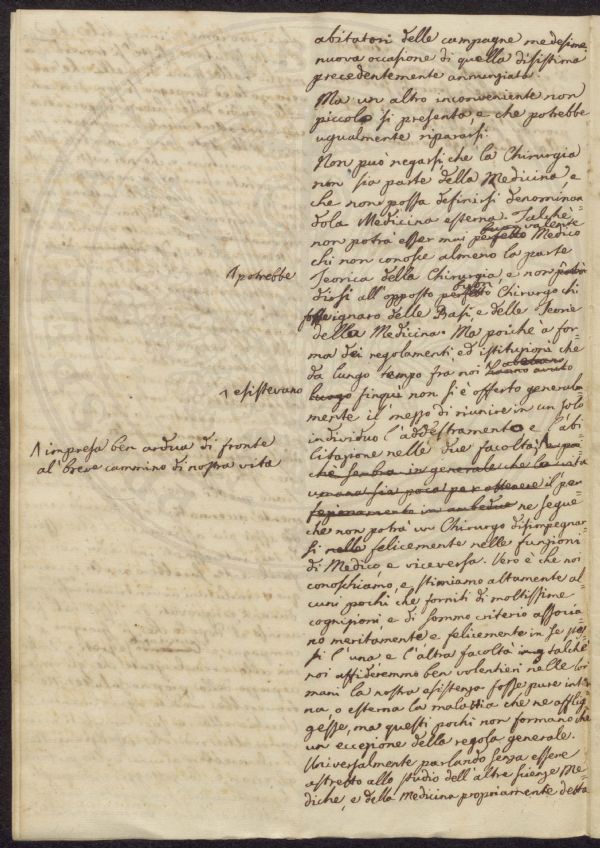 abitatori delle campagne medesime
nuova occasione di quella disistima
precedentemente annunziata.
Ma un altro inconveniente non
piccolo si presenta, e che potrebbe
ugualmente ripararsi.
Non può negarsi, che la Chirurgia
non sia parte della Medicina, e
che non possa definirsi denominan=
dola Medicina esterna. Talchè
buon valente
non potrà esser mai perfetto Medico
chi non conosce almeno la parte
^potrebbe
Teorica della Chirurgia, e non
dirsi all'opposto perfetto Chirurgo chi
fosse ignaro delle Basi, e delle Teorie
della Medicina. Ma poichè a for=
ma dei regolamenti ed istituzioni che
da lungo tempo fra noi hanno avuto
^esistevano
luogo finquì non si è offerto general=
mente il mezzo di riunire in un solo
individuo l'addestramento e l'abi=
litazione nelle due facoltà: e poi
^impresa ben ardua di fronte
al breve cammino di nostra vita
chè sembra in generale che la vita
umana sia poca per ottenere il per=
fezionamento in ambedue ne segue
che non potrà un Chirurgo disimpegnar=
si nelle felicemente nelle funzioni
di Medico, e viceversa. Vero è che noi
conoschiamo, e stimiamo altamente al=
cuni pochi che forniti di moltissime
cognizioni, e di sommo criterio associa=
no meritamente e felicemente in se stes=
si l'una e l'altra facoltà talchè
noi affideremmo ben volentieri nelle loro
mani la nostra esistenza fosse pure inter
na, o esterna la malattia che ne afflig=
gesse, ma questi pochi non formano che
un eccezione della regola generale.
Universalmente parlando senza essere
astretto allo studio dell'altre scienze Me=
diche, e della Medicina propriamente detta